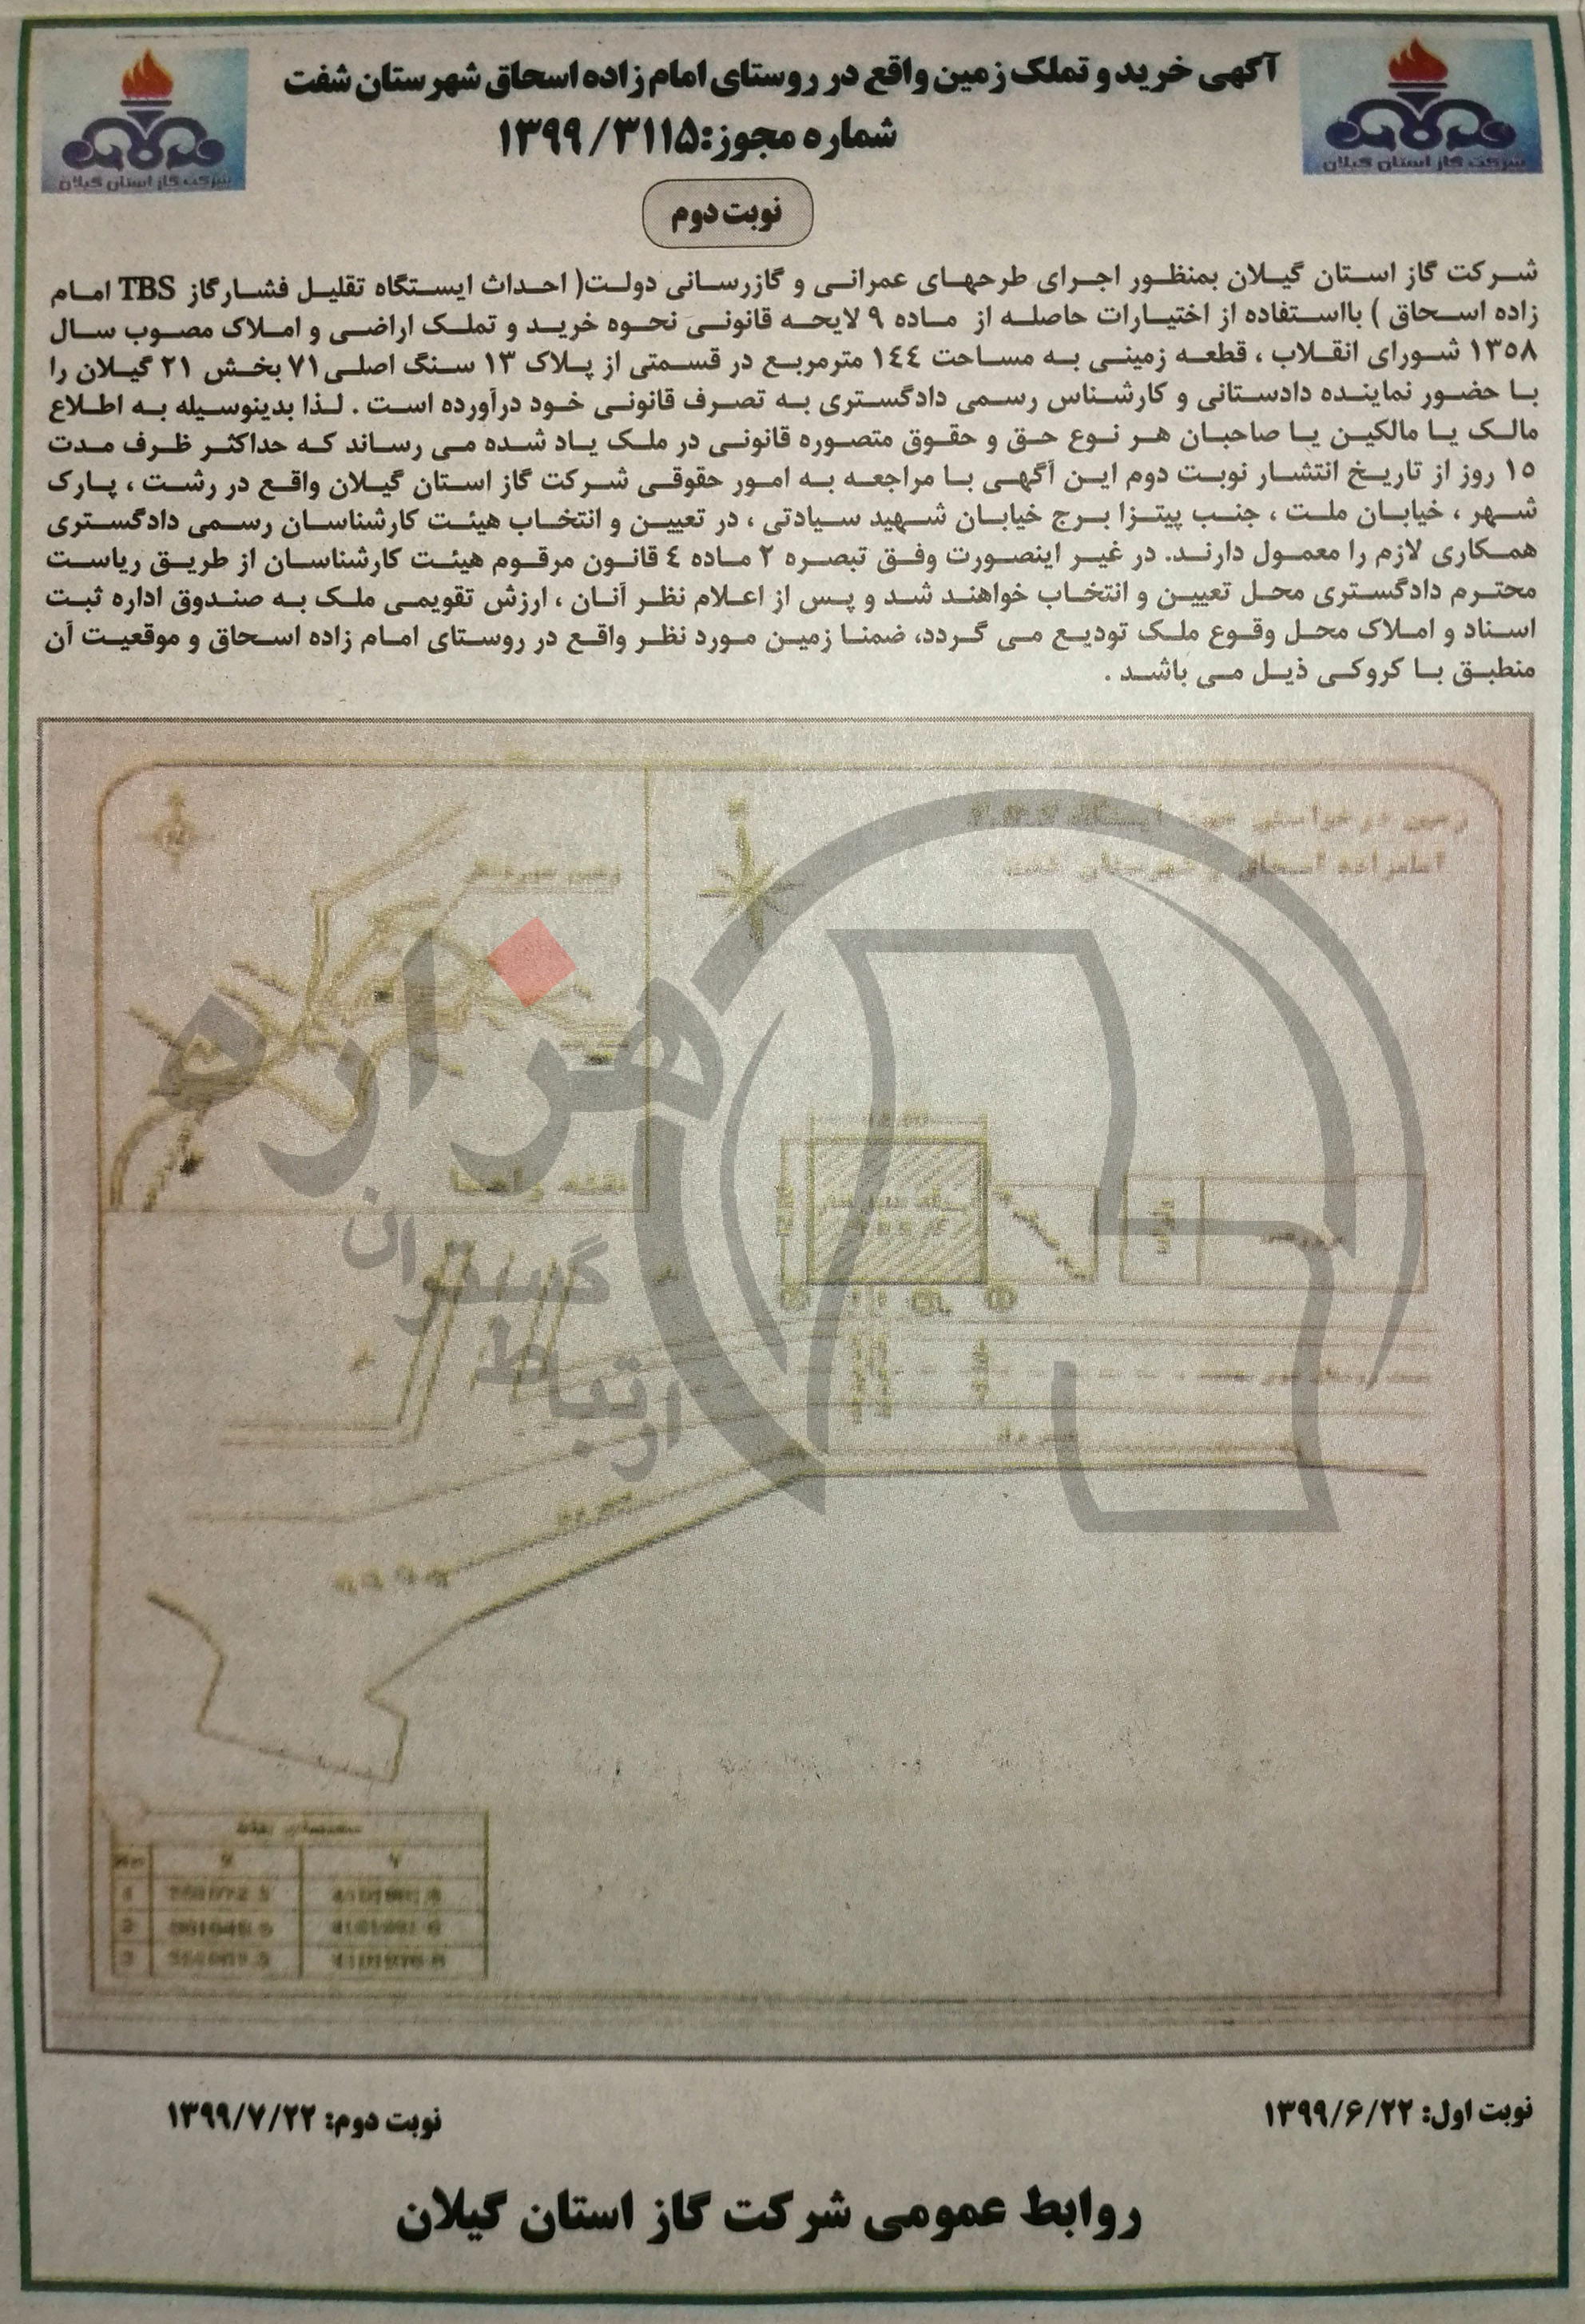 آگهی خرید و تملک زمین واقع در روستای امام زاده اسحاق شهرستان شفت
شماره مجوز: ۱۳۹۹/۳۱۱۵
شرکت گاز استان گیلان
شرکت گاز استان گیلان
نوبت دوم
شرکت گاز استان گیلان بمنظور اجرای طرحهای عمرانی و گازرسانی دولت( احداث ایستگاه تقلیل فشارگاز TBS امام
زاده اسحاق ) بااستفاده از اختیارات حاصله از ماده ۹ لایحه قانونی نحوه خرید و تملک اراضی و املاک مصوب سال
۱۳۵۸ شورای انقلاب ، قطعه زمینی به مساحت ۱٤٤ مترمربع در قسمتی از پلاک ۱۳ سنگ اصلی ۷۱ بخش ۲۱ گیلان را
با حضور نماینده دادستانی و کارشناس رسمی دادگستری به تصرف قانونی خود درآورده است . لذا بدینوسیله به اطلاع
مالک یا مالکین یا صاحبان هر نوع حق و حقوق متصوره قانونی در ملک یاد شده می رساند که حداکثر ظرف مدت
۱۵ روز از تاریخ انتشار نوبت دوم این آگهی با مراجعه به امور حقوقی شرکت گاز استان گیلان واقع در رشت ، پارک
شهر ، خیابان ملت ، جنب پیتزا برج خیابان شهید سیادتی ، در تعیین و انتخاب هیئت کارشناسان رسمی دادگستری
همکاری لازم را معمول دارند. در غیر اینصورت وفق تبصره ۲ ماده ٤ قانون مرقوم هیئت کارشناسان از طریق ریاست
محترم دادگستری محل تعیین و انتخاب خواهند شد و پس از اعلام نظر آنان ، ارزش تقویمی ملک به صندوق اداره ثبت
اسناد و املاک محل وقوع ملک تودیع می گردد، ضمنا زمین مورد نظر واقع در روستای امام زاده اسحاق و موقعیت آن
منطبق با کروکی ذیل می باشد .
زمین درخواستی جهت ایستگاه
امامزاده اسحاق شهرستان شفت
زمین موردنظر
نقشه راهنما
هزاره
گستران
ارتباط
مختصات نقاط
X Y
1
2
3
نوبت اول: ۱۳۹۹/۶/۲۲
نوبت دوم: ۱۳۹۹/۷/۲۲
روابط عمومی شرکت گاز استان گیلان